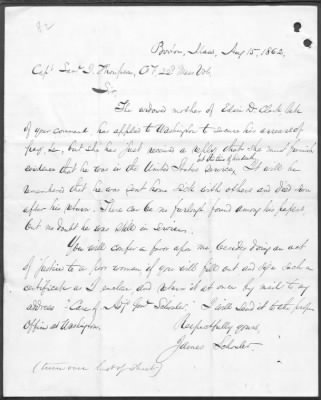 82
Boston, Mass, Aug 15, 1862,
Capt. Saml. I. Thompson, Mass Vol.
Sir,
The widowed mother of Edwin D. Clark late
of your command has applied to Washington to secure his arrears of
pay, &c, but she has just received a reply that she must furnish
at the time of his death
evidence that he was in the United States Service. It will be
remembered that he was sent home sick with others and died soon
after his return. There can be no furlough found among his papers
but no doubt he was still in service.
You will confer a favor upon me besides doing an act
of justice to a poor woman if you will fill out and sign such a
certificate as I enclose and return it at once by mail to my
address "Care of Adjt Genl Schouler." I will send it to the proper
Office at Washington.
Respectfully yours,
James Schouler.
(turn over last of sheet)